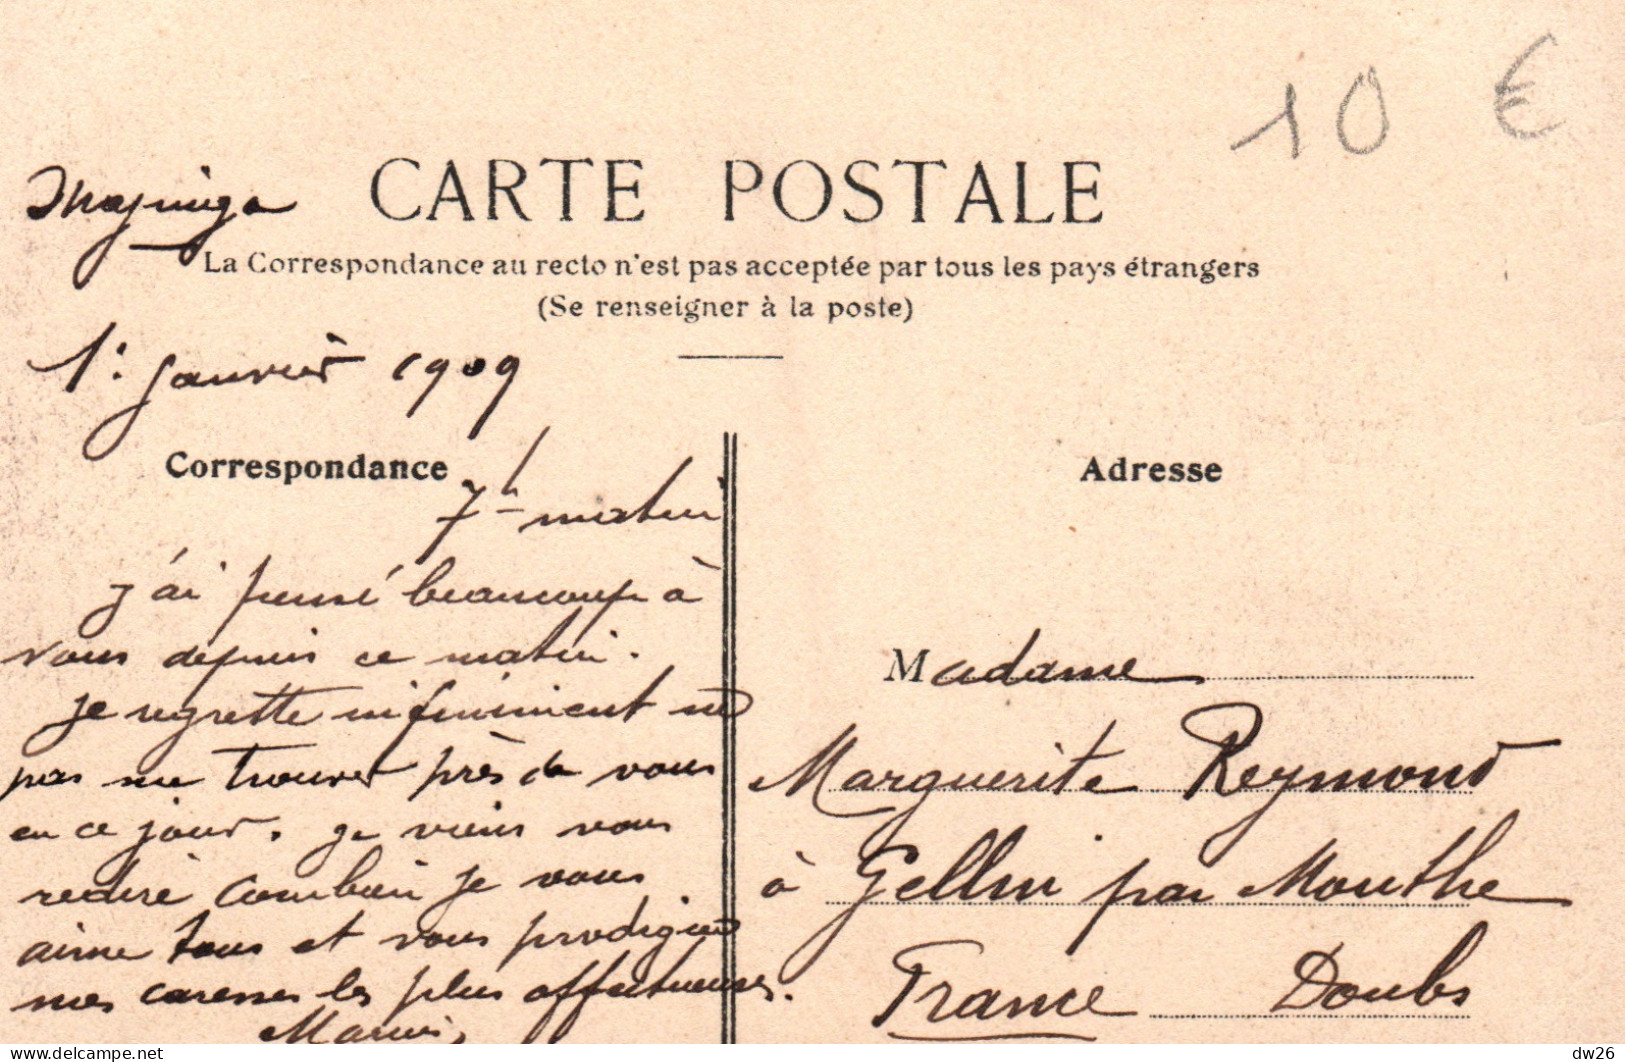 10 €
CARTE POSTALE
Majunga
La Correspondance au recto n'est pas acceptée par tous les pays étrangers
(Se renseigner à la poste)
1: Janvier 1909
Correspondance
7h matin
J'ai pensé beaucoup à
vous depuis ce matin.
Je regrette infiniment ne
pas me trouver près de vous
en ce jour. Je viens vous
redire combien je vous
aime tous et vous prodiguer
mes caresses les plus affectueuses.
Adresse
Madame
Marguerite Reymond
à Gellin par Mouthe
France Doubs
dw26